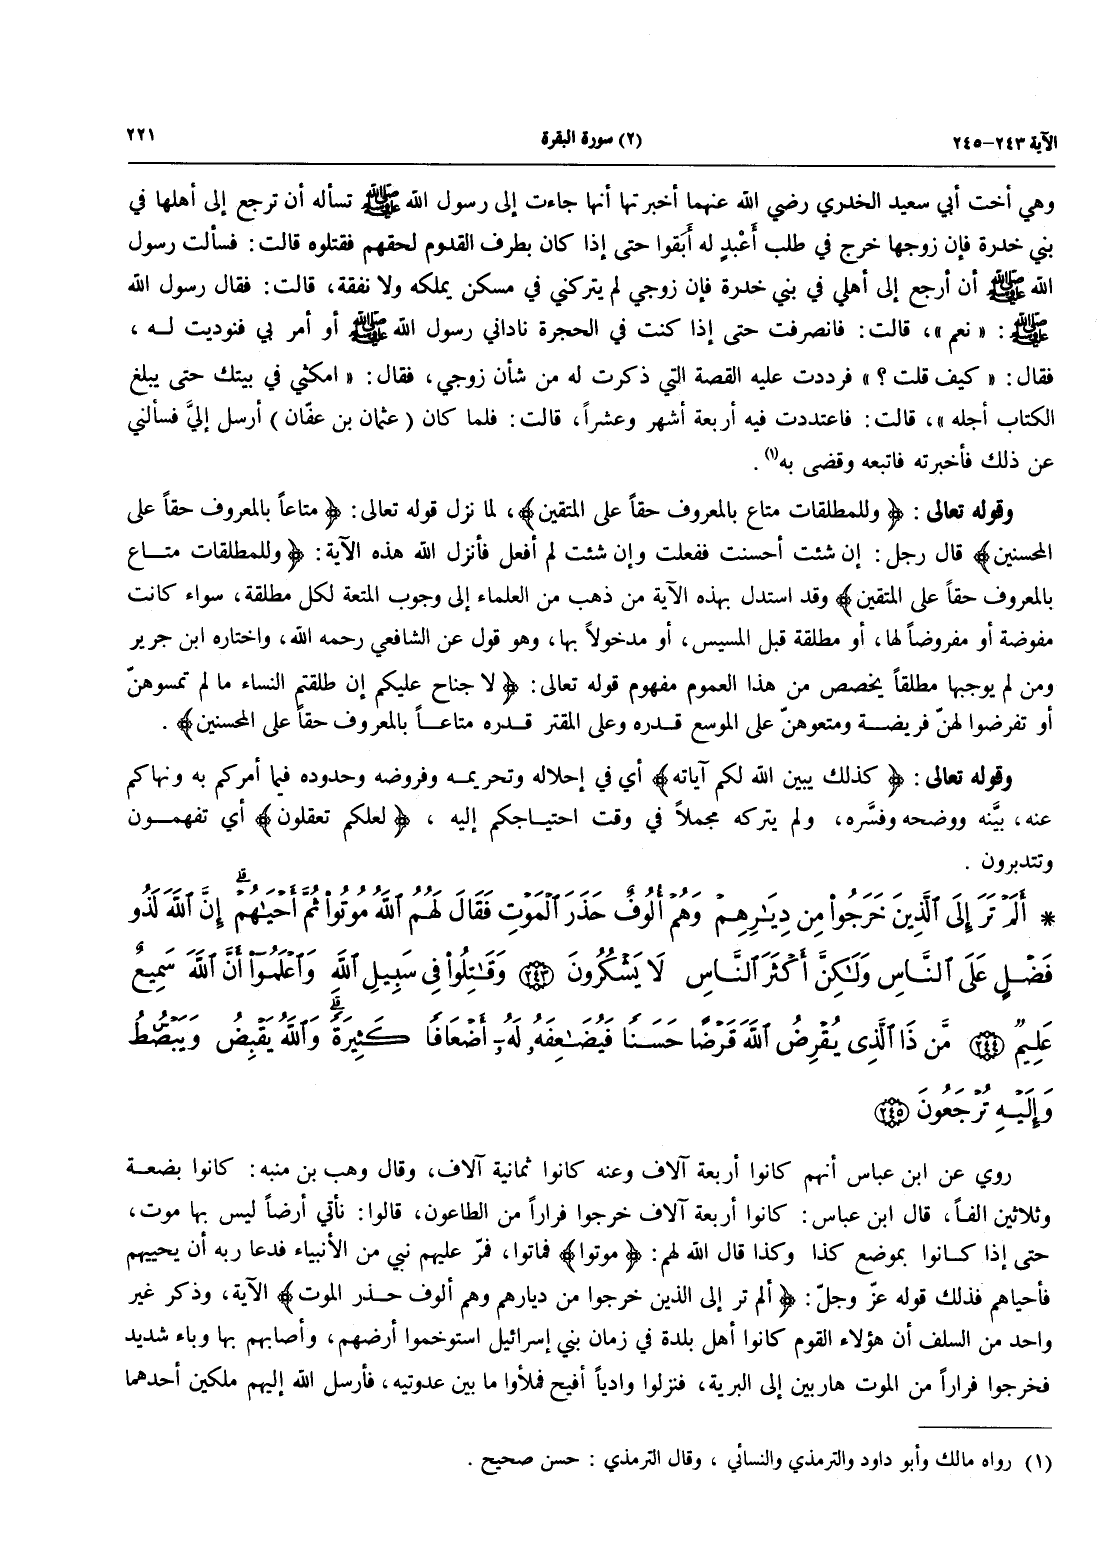 الآية ٢٤٣-٢٤٥ (٢) سورة البقرة ٢٢١
وهي أخت أبي سعيد الخدري رضي الله عنهما أخبرتها أنها جاءت إلى رسول الله ﷺ تسأله أن ترجع إلى أهلها في
بني خدرة فإن زوجها خرج في طلب أَعْبدٍ له أَبَقوا حتى إذا كان بطرف القدوم لحقهم فقتلوه قالت: فسألت رسول
الله ﷺ أن أرجع إلى أهلي في بني خدرة فإن زوجي لم يتركني في مسكن يملكه ولا نفقة، قالت: فقال رسول الله
ﷺ: « نعم »، قالت: فانصرفت حتى إذا كنت في الحجرة ناداني رسول الله ﷺ أو أمر بي فنوديت لـه ،
فقال: « كيف قلت ؟ » فرددت عليه القصة التي ذكرت له من شأن زوجي، فقال: « امكثي في بيتك حتى يبلغ
الكتاب أجله »، قالت: فاعتددت فيه أربعة أشهر وعشراً، قالت: فلما كان ( عثمان بن عفّان ) أرسل إليَّ فسألني
عن ذلك فأخبرته فاتبعه وقضى به(١) .
وقوله تعالى : ﴿ وللمطلقات متاع بالمعروف حقاً على المتقين﴾، لما نزل قوله تعالى: ﴿ متاعاً بالمعروف حقاً على
المحسنين﴾ قال رجل: إن شئت أحسنت ففعلت وإن شئت لم أفعل فأنزل الله هذه الآية: ﴿وللمطلقات متــاع
بالمعروف حقاً على المتقين﴾ وقد استدل بهذه الآية من ذهب من العلماء إلى وجوب المتعة لكل مطلقة، سواء كانت
مفوضة أو مفروضاً لها، أو مطلقة قبل المسيس، أو مدخولاً بها، وهو قول عن الشافعي رحمه الله، واختاره ابن جرير
ومن لم يوجبها مطلقاً يخصص من هذا العموم مفهوم قوله تعالى: ﴿ لا جناح عليكم إن طلقتم النساء ما لم تمسوهنّ
أو تفرضوا لهنّ فريضــة ومتعوهنّ على الموسع قـدره وعلى المقتر قـدره متاعــاً بالمعروف حقاً على المحسنين﴾ .
وقوله تعالى : ﴿ كذلك يبين الله لكم آياته﴾ أي في إحلاله وتحريمـه وفروضه وحدوده فيما أمركم به ونهاكم
عنه، بيَّنه ووضحه وفسَّره، ولم يتركه مجملاً في وقت احتيـاجكم إليه ، ﴿ لعلكم تعقلون﴾ أي تفهمــون
وتتدبرون .
* أَلَمْ تَرَ إِلَى ٱلَّذِينَ خَرَجُواْ مِن دِيَـٰرِهِمْ وَهُمْ أُلُوفٌ حَذَرَ ٱلْمَوْتِ فَقَالَ لَهُمُ ٱللَّهُ مُوتُواْ ثُمَّ أَحْيَـٰهُمْ ۚ إِنَّ ٱللَّهَ لَذُو
فَضْلٍ عَلَى ٱلنَّاسِ وَلَـٰكِنَّ أَكْثَرَ ٱلنَّاسِ لَا يَشْكُرُونَ ﴿٢٤٣﴾ وَقَـٰتِلُواْ فِى سَبِيلِ ٱللَّهِ وَٱعْلَمُوٓاْ أَنَّ ٱللَّهَ سَمِيعٌ
عَلِيمٌ ﴿٢٤٤﴾ مَّن ذَا ٱلَّذِى يُقْرِضُ ٱللَّهَ قَرْضًا حَسَنًا فَيُضَـٰعِفَهُۥ لَهُۥٓ أَضْعَافًا كَثِيرَةً ۚ وَٱللَّهُ يَقْبِضُ وَيَبْصُۜطُ
وَإِلَيْهِ تُرْجَعُونَ ﴿٢٤٥﴾
روي عن ابن عباس أنهم كانوا أربعة آلاف وعنه كانوا ثمانية آلاف، وقال وهب بن منبه: كانوا بضعـة
وثلاثين الفـاً، قال ابن عباس: كانوا أربعة آلاف خرجوا فراراً من الطاعون، قالوا: نأتي أرضاً ليس بها موت،
حتى إذا كـانوا بموضع كذا وكذا قال الله لهم: ﴿ موتوا﴾ فماتوا، فمرّ عليهم نبي من الأنبياء فدعا ربه أن يحييهم
فأحياهم فذلك قوله عزّ وجلّ: ﴿ ألم تر إلى الذين خرجوا من ديارهم وهم ألوف حـذر الموت﴾ الآية، وذكر غير
واحد من السلف أن هؤلاء القوم كانوا أهل بلدة في زمان بني إسرائيل استوخموا أرضهم، وأصابهم بها وباء شديد
فخرجوا فراراً من الموت هاربين إلى البرية، فنزلوا وادياً أفيح فملأوا ما بين عدوتيه، فأرسل الله إليهم ملكين أحدهما
(١) رواه مالك وأبو داود والترمذي والنسائي ، وقال الترمذي : حسن صحيح .